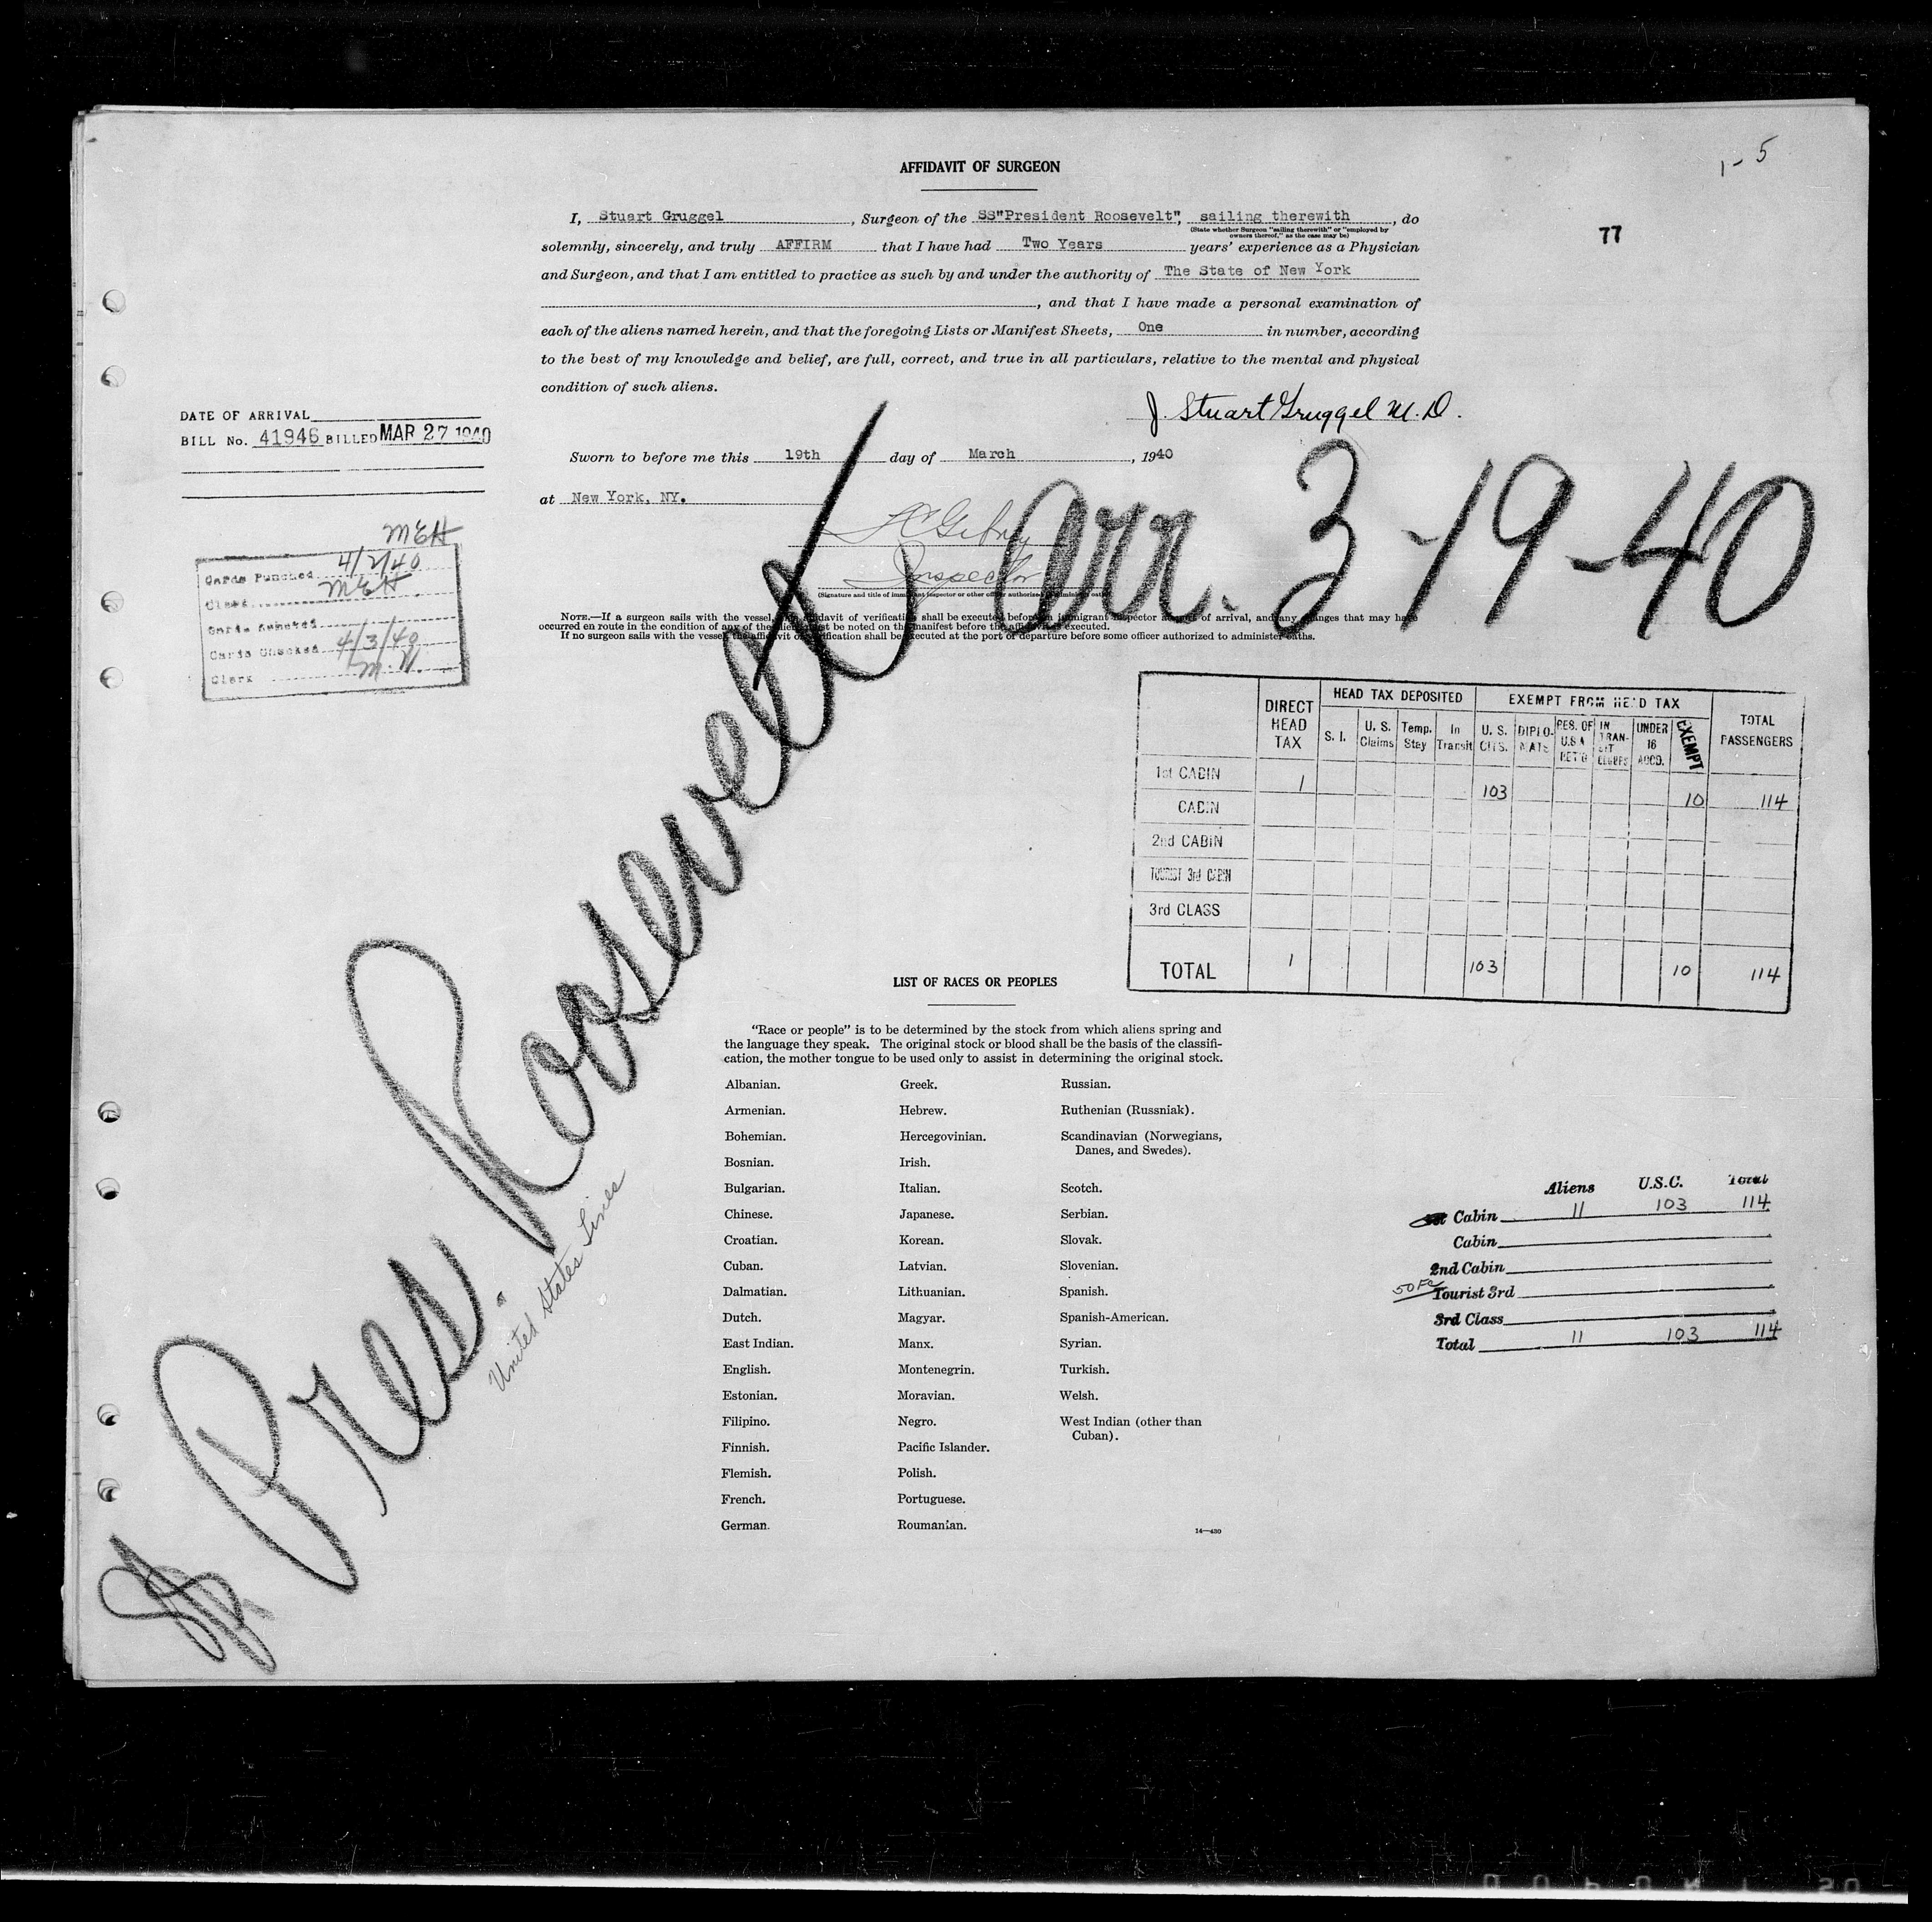 1-5
77
AFFIDAVIT OF SURGEON
I, Stuart Gruggel, Surgeon of the SS"President Roosevelt", sailing therewith, do
(State whether Surgeon "sailing therewith" or "employed by
owners thereof," as the case may be)
solemnly, sincerely, and truly AFFIRM that I have had Two Years years' experience as a Physician
and Surgeon, and that I am entitled to practice as such by and under the authority of The State of New York
, and that I have made a personal examination of
each of the aliens named herein, and that the foregoing Lists or Manifest Sheets, One in number, according
to the best of my knowledge and belief, are full, correct, and true in all particulars, relative to the mental and physical
condition of such aliens.
J. Stuart Gruggel M.D.
DATE OF ARRIVAL
BILL No. 41946 BILLED MAR 27 1940
Sworn to before me this 19th day of March, 1940
at New York, NY.
Inspector
(Signature and title of immigrant inspector or other officer authorized to administer oaths)
NOTE.—If a surgeon sails with the vessel, this affidavit of verification shall be executed before an immigrant inspector at port of arrival, and any changes that may have
occurred en route in the condition of any of the aliens must be noted on the manifest before the affidavit is executed.
If no surgeon sails with the vessel, the affidavit of verification shall be executed at the port of departure before some officer authorized to administer oaths.
MEH
Cards Punched 4/2/40
Clerk MEH
Cards
Cards Checked 4/3/40
Clerk M.N.
Arr. 3-19-40
Pres. Roosevelt
United States Lines
DIRECT HEAD TAX HEAD TAX DEPOSITED EXEMPT FROM HEAD TAX TOTAL PASSENGERS
S. I. U. S. Claims Temp. Stay In Transit U. S. CITS. DIPLOMATS RES. OF U.S.A. RET'G IN TRANSIT UNDER 16 ACCD. EXEMPT
1st CABIN 1 103 10 114
CABIN
2nd CABIN
TOURIST 3rd CABIN
3rd CLASS
TOTAL 1 103 10 114
LIST OF RACES OR PEOPLES
"Race or people" is to be determined by the stock from which aliens spring and
the language they speak. The original stock or blood shall be the basis of the classifi-
cation, the mother tongue to be used only to assist in determining the original stock.
Albanian. Greek. Russian.
Armenian. Hebrew. Ruthenian (Russniak).
Bohemian. Hercegovinian. Scandinavian (Norwegians,
Danes, and Swedes).
Bosnian. Irish.
Bulgarian. Italian. Scotch.
Chinese. Japanese. Serbian.
Croatian. Korean. Slovak.
Cuban. Latvian. Slovenian.
Dalmatian. Lithuanian. Spanish.
Dutch. Magyar. Spanish-American.
East Indian. Manx. Syrian.
English. Montenegrin. Turkish.
Estonian. Moravian. Welsh.
Filipino. Negro. West Indian (other than
Cuban).
Finnish. Pacific Islander.
Flemish. Polish.
French. Portuguese.
German. Roumanian.
14—430
Aliens U.S.C. Total
Cabin 11 103 114
Cabin
2nd Cabin
Tourist 3rd
3rd Class
Total 11 103 114